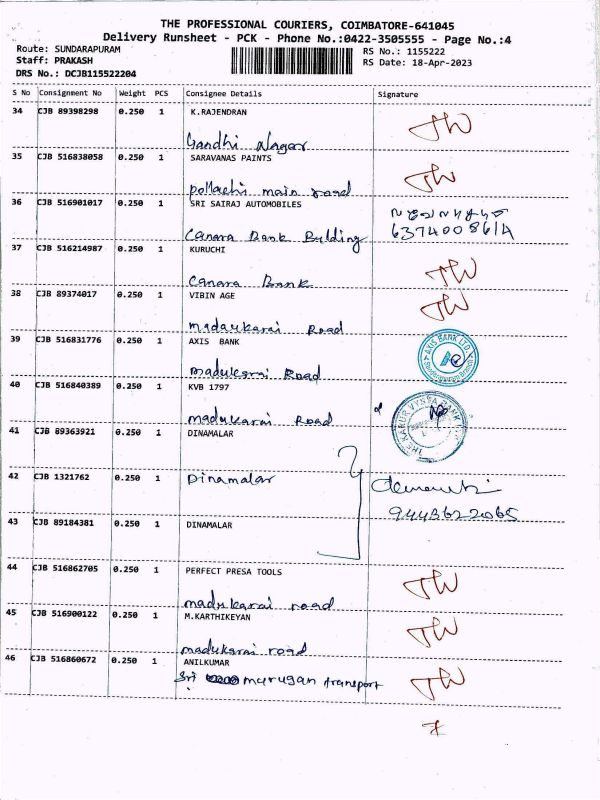 THE PROFESSIONAL COURIERS, COIMBATORE-641045
Delivery Runsheet - PCK - Phone No.:0422-3505555 - Page No.:4
Route: SUNDARAPURAM
RS No.: 1155222
Staff: PRAKASH
RS Date: 18-Apr-2023
DRS No.: DCJB115522204
S No Consignment No Weight PCS Consignee Details Signature
34 CJB 89398298 0.250 1 K.RAJENDRAN
Gandhi Nagar
35 CJB 516838058 0.250 1 SARAVANAS PAINTS
pollachi main road
36 CJB 516901017 0.250 1 SRI SAIRAJ AUTOMOBILES
Canara Bank Bulding
37 CJB 516214987 0.250 1 KURUCHI
Canara Bank
38 CJB 89374017 0.250 1 VIBIN AGE
madaukarai Road
39 CJB 516831776 0.250 1 AXIS BANK
AXIS BANK LTD.
madukarai Road
40 CJB 516840389 0.250 1 KVB 1797
THE KARUR VYSYA BANK LTD
madukarai Road
41 CJB 89363921 0.250 1 DINAMALAR
42 CJB 1321762 0.250 1 Dinamalar
9443622065
43 CJB 89184381 0.250 1 DINAMALAR
44 CJB 516862705 0.250 1 PERFECT PRESA TOOLS
madukarai road
45 CJB 516900122 0.250 1 M.KARTHIKEYAN
madukarai road
46 CJB 516860672 0.250 1 ANILKUMAR
Sri murugan transport